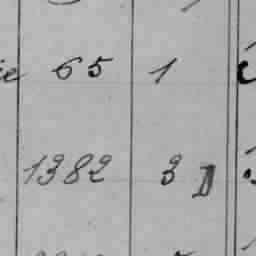 65 1
1382 3 D